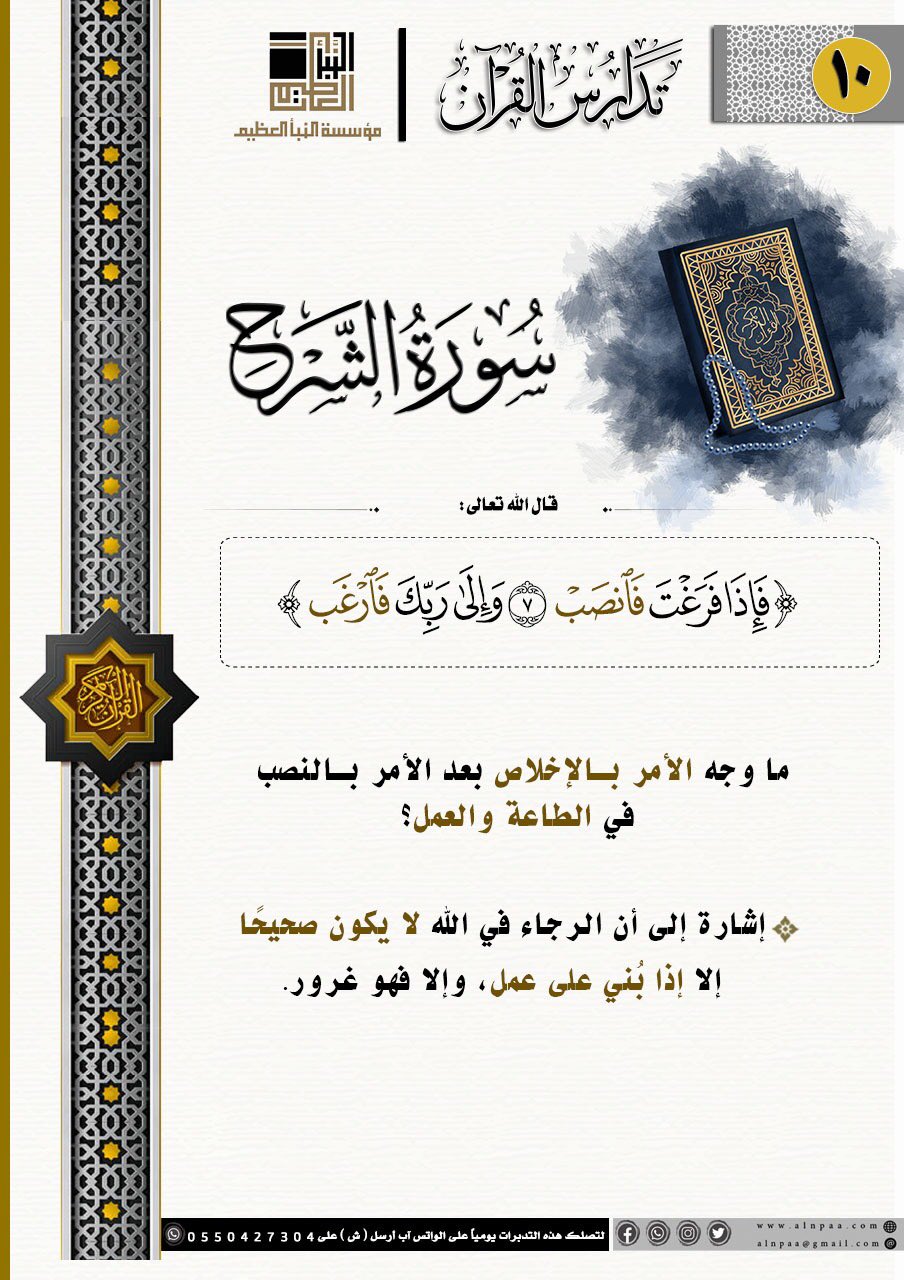 ١٠
تَدَارُسُ القُرْآن
النبأ العظيم
مؤسسة النبأ العظيم
سُورَةُ الشَّرْحِ
قال الله تعالى:
﴿فَإِذَا فَرَغْتَ فَٱنصَبْ ٧ وَإِلَىٰ رَبِّكَ فَٱرْغَب﴾
القرآن الكريم
ما وجه الأمر بـالإخلاص بعد الأمر بـالنصب
في الطاعة والعمل؟
إشارة إلى أن الرجاء في الله لا يكون صحيحًا
إلا إذا بُني على عمل، وإلا فهو غرور.
لتصلك هذه التدبرات يومياً على الواتس آب أرسل ( ش ) على 0550427304
www.alnpaa.com
alnpaa@gmail.com